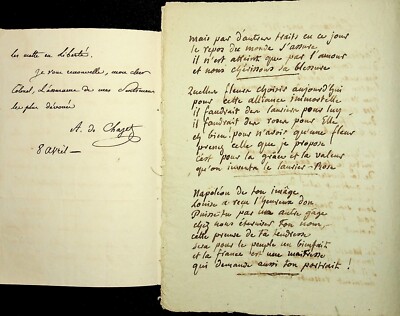 les mette en liberté.
Je vous renouvelle, mon cher
Colonel, l'assurance de mes sentimens
les plus dévoués
A. de Chazet
8 avril —
mais par d'autres traits en ce jour
le repos du monde s'assure
il n'est atteint que par l'amour
et nous chérissons sa blessure
Quelles fleurs choisir aujourd'hui
pour cette alliance immortelle
il faudrait des lauriers pour lui,
il faudrait des roses pour Elle
eh bien! pour n'avoir qu'une fleur
prenez celle que je propose
c'est pour la grâce et la valeur
qu'on inventa le laurier-Rose
Napoléon de ton image
Louise a reçu l'heureux don
Puisse-tu par un autre gage
chez nous éterniser ton nom,
cette preuve de ta tendresse
sera pour le peuple un bienfait
et la france est une maitresse
qui demande aussi ton portrait !